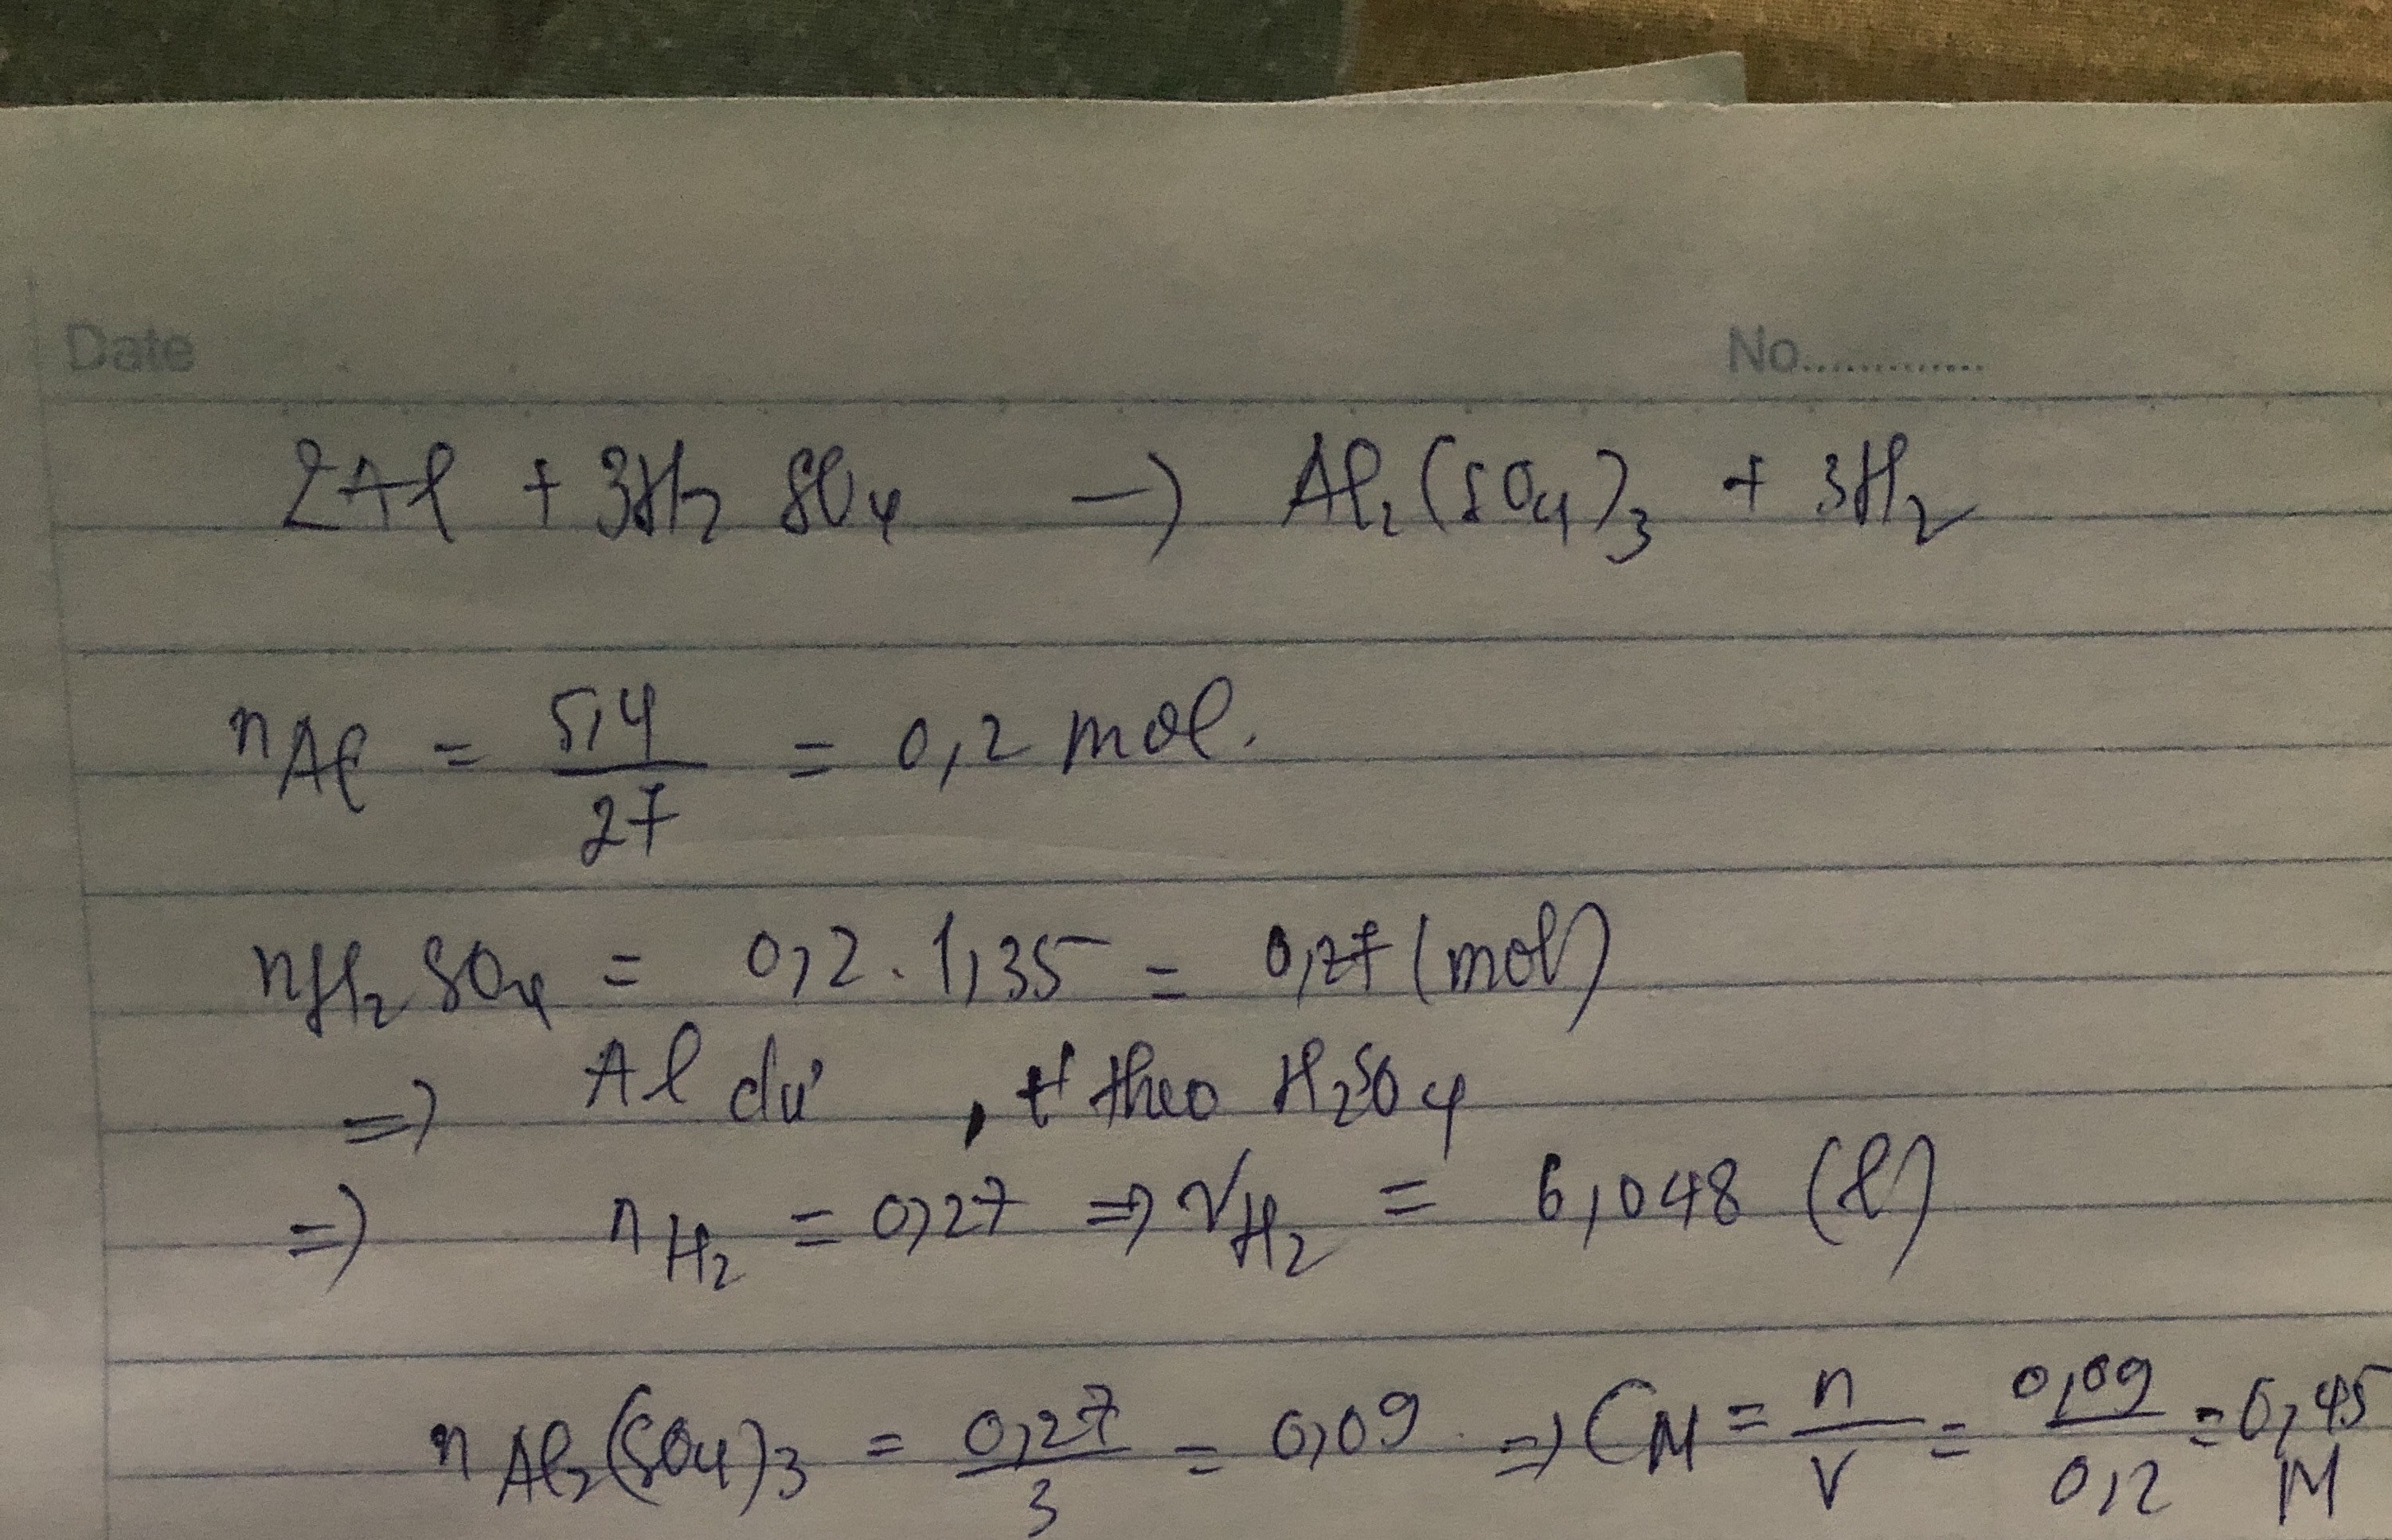 Date No..............
2Al + 3H₂SO₄ → Al₂(SO₄)₃ + 3H₂
nAl = 5,4/27 = 0,2 mol.
nH₂SO₄ = 0,2 . 1,35 = 0,27 (mol)
=> Al dư , theo H₂SO₄
=> nH₂ = 0,27 => VH₂ = 6,048 (l)
nAl₂(SO₄)₃ = 0,27/3 = 0,09 => CM = n/V = 0,09/0,2 = 0,45 M